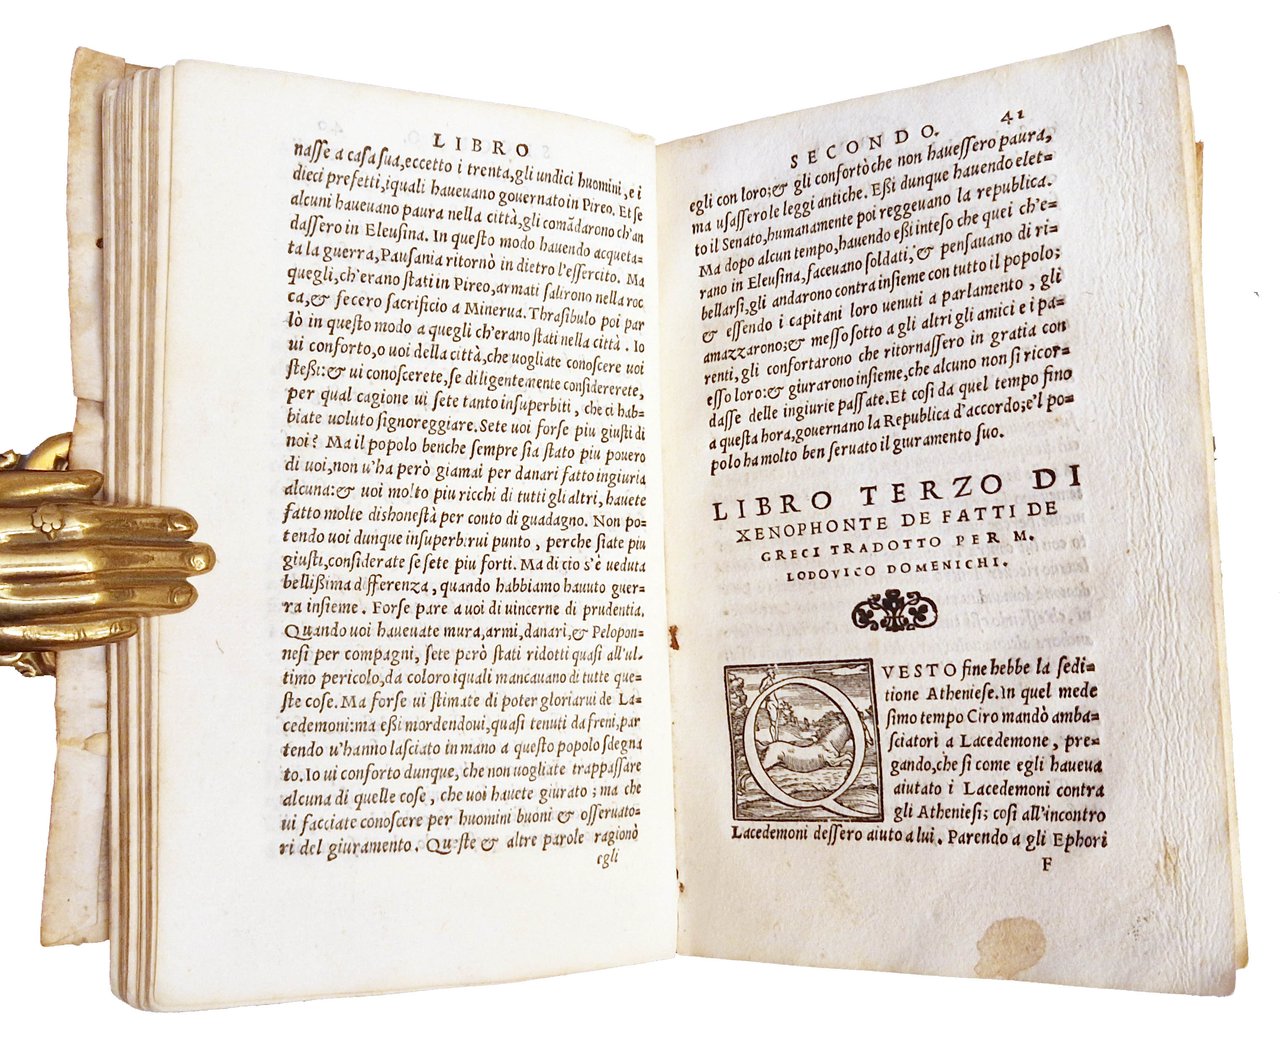 LIBRO
nasse a casa sua, eccetto i trenta, gli undici huomini, e i
dieci prefetti, i quali haueuano gouernato in Pireo. Et se
alcuni haueuano paura nella città, gli comãdarono ch'an
dassero in Eleusina. In questo modo hauendo acqueta-
ta la guerra, Pausania ritornò in dietro l'essercito. Ma
quegli, ch'erano stati in Pireo, armati salirono nella roc
ca, & fecero sacrificio a Minerua. Thrasibulo poi par
lò in questo modo a quegli ch'erano stati nella città. Io
ui conforto, o uoi della città, che uogliate conoscere uoi
steßi: & ui conoscerete, se diligentemente considererete,
per qual cagione ui sete tanto insuperbiti, che ci hab-
biate uoluto signoreggiare. Sete uoi forse piu giusti di
noi? Ma il popolo benche sempre sia stato piu pouero
di uoi, non u'ha però giamai per danari fatto ingiuria
alcuna: & uoi molto piu ricchi di tutti gli altri, hauete
fatto molte dishonestà per conto di guadagno. Non po-
tendo uoi dunque insuperbirui punto, perche siate piu
giusti, considerate se sete piu forti. Ma di cio s'è ueduta
bellißima differenza, quando habbiamo hauuto guer-
ra insieme. Forse pare a uoi di uincerne di prudentia.
Quando uoi haueuate mura, armi, danari, & Pelopon-
nesi per compagni, sete però stati ridotti quasi all'ul-
timo pericolo, da coloro i quali mancauano di tutte que-
ste cose. Ma forse ui stimate di poter gloriarui de La-
cedemoni: ma eßi mordendoui, quasi tenuti da freni, par
tendo u'hanno lasciato in mano a questo popolo sdegna
to. Io ui conforto dunque, che non uogliate trappassare
alcuna di quelle cose, che uoi hauete giurato; ma che
ui facciate conoscere per huomini buoni & osseruato-
ri del giuramento. Queste & altre parole ragionò
egli
SECONDO. 41
egli con loro: & gli confortò che non hauessero paura,
ma usassero le leggi antiche. Eßi dunque hauendo elet-
to il Senato, humanamente poi reggeuano la republica.
Ma dopo alcun tempo, hauendo eßi inteso che quei ch'e-
rano in Eleusina, faceuano soldati, & pensauano di ri-
bellarsi, gli andarono contra insieme con tutto il popolo;
& essendo i capitani loro uenuti a parlamento, gli
amazzarono; & messo sotto a gli altri gli amici e i pa-
renti, gli confortarono che ritornassero in gratia con
esso loro: & giurarono insieme, che alcuno non si ricor-
dasse delle ingiurie passate. Et cosi da quel tempo fino
a questa hora, gouernano la Republica d'accordo; e'l po-
polo ha molto ben seruato il giuramento suo.
LIBRO TERZO DI
XENOPHONTE DE FATTI DE
GRECI TRADOTTO PER M.
LODOVICO DOMENICHI.
QVESTO fine hebbe la sedi-
tione Atheniese. In quel mede
simo tempo Ciro mandò amba-
sciatori a Lacedemone, pre-
gando, che si come egli haueua
aiutato i Lacedemoni contra
gli Atheniesi; cosi all'incontro
Lacedemoni dessero aiuto a lui. Parendo a gli Ephori
F